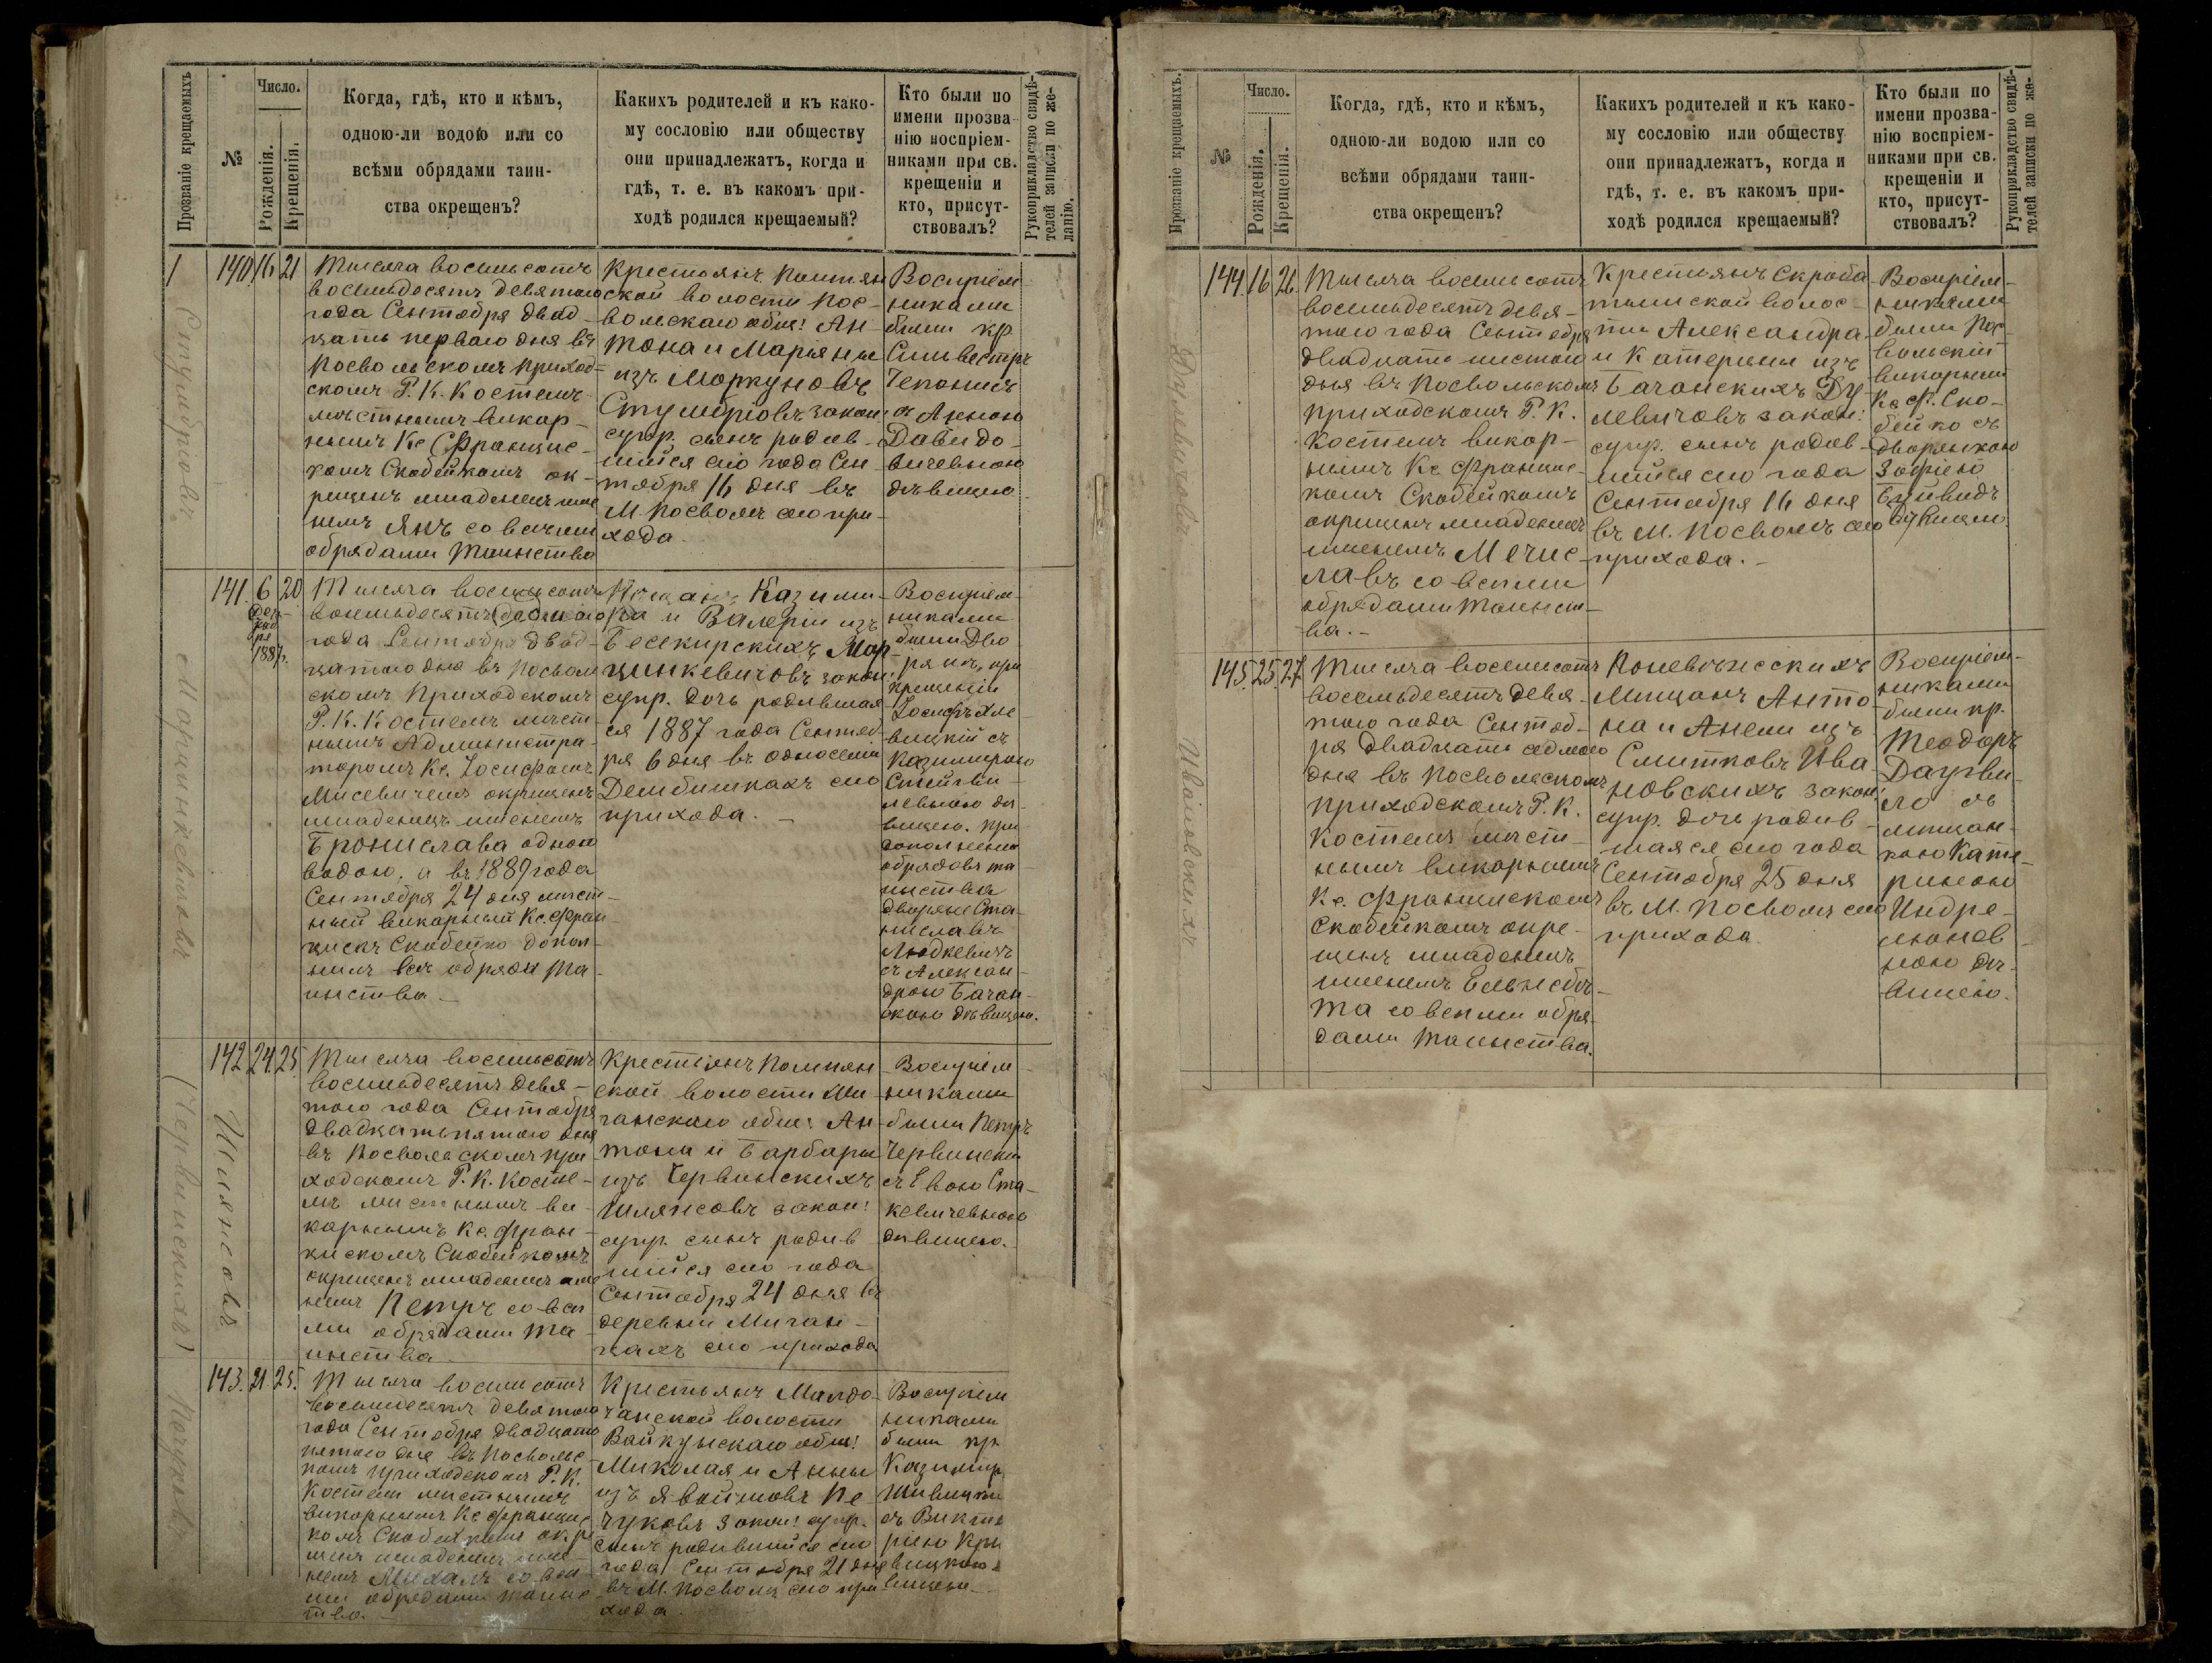 Прозваніе крещаемыхъ
№
Число.
Рожденія.
Крещенія.
Когда, гдѣ, кто и кѣмъ,
одною-ли водою или со
всѣми обрядами таин-
ства окрещенъ?
Какихъ родителей и къ како-
му сословію или обществу
они принадлежатъ, когда и
гдѣ, т. е. въ какомъ при-
ходѣ родился крещаемый?
Кто были по
имени прозва-
нію воспріем-
никами при св.
крещеніи и
кто, присут-
ствовалъ?
Рукоприкладство свидѣ-
телей записки по же-
ланію.
1
Стумбрговъ
140. 16. 21
Тысяча восемьсотъ
восемьдесятъ девятаго
года Сентября двад-
цать перваго дня въ
Посвольскомъ приход-
скомъ Р. К. Костелѣ
мѣстнымъ викар-
нымъ Кс Францис-
комъ Скобейкомъ ок-
рещенъ младенецъ име
немъ Янъ со всѣми
обрядами Таинства
Крестьянъ Помпян
ской волости Пос-
вольскаго общ: Ан-
тона и Маріяны
изъ Моркуновъ
Стумбрговъ закон:
супр. сынъ родив-
шійся сего года Сен-
тября 16 дня въ
М. Посволѣ сего при-
хода.
Воспріем-
никами
были кр.
Сильвестръ
Чепонисъ
съ Анною
Давидо-
вичевною
дѣвицею
Марцинкевичовъ
141. 6 20
Сен-
тяб-
ря
1887г.
Тысяча восемьсотъ
восемьдесятъ седьмаго
года Сентября двад-
цатаго дня въ Посволь
скомъ Приходскомъ
Р. К. Костелѣ мѣст-
нымъ Администра-
торомъ Кс. Іосифомъ
Мисевичемъ окрещенъ
младенецъ именемъ
Бронислава одною
водою, а въ 1889 года
Сентября 24 дня мѣст-
ный викарный Кс. Фран-
цискъ Скобейко допол-
нилъ всѣ обряды Та-
инства
Мѣщанъ Казими-
ра и Валеріи изъ
Бесекирскихъ Мар-
цинкевичовъ закон:
супр. дочь родившая
ся 1887 года Сентяб-
ря 6 дня въ односеліи
Дембишкахъ сего
прихода.
Воспріем-
никами
были Дво
ряне, при
крещеніи
Іосифъ
вицкій съ
Казимирою
невною дѣ-
вицею. При
дополненіи
обрядовъ та-
инства
дворяне Ста-
ниславъ
Людкевичъ
съ Алексан-
дрою Бачан-
скою дѣвицею.
Шлянсовъ
(Червинскихъ)
142. 24. 25.
Тысяча восемьсотъ
восемьдесятъ девя-
таго года Сентября
двадцать пятаго дня
въ Посвольскомъ при
ходскомъ Р. К. Косте-
лѣ мѣстнымъ ви-
карнымъ Кс. Фран-
цискомъ Скобейкомъ
окрещенъ младенецъ име
немъ Петръ со всѣ
ми обрядами Та-
инства
Крестьянъ Помпян
ской волости Ми-
ганскаго общ: Ан-
тона и Барбары
изъ Червинскихъ
Шлянсовъ закон:
супр. сынъ родив
шійся сего года
Сентября 24 дня въ
деревни Миган-
цахъ сего прихода
Воспріем-
никами
были Петръ
Червински
съ Евою Ста-
кевичевною
дѣвицею.
Печуковъ
143. 21. 25.
Тысяча восемьсотъ
восемьдесятъ девятаго
года Сентября двадцать
пятаго дня въ Посвольс-
комъ приходскомъ Р. К.
Костели мѣстнымъ
викарнымъ Кс Францис
комъ Скобейкомъ окре
щенъ младенецъ име-
немъ Михаилъ со всѣ
ми обрядами таинс-
тва.
Крестьянъ
волости
Вайкунскаго общ:
Миколая и Анны
изъ Явойшовъ Пе-
чуковъ закон: супр.
сынъ родившійся сего
года Сентября 21 дня
въ М. Посволѣ сего при
хода.
Воспріем
никами
были кр.
Казимиръ
съ Викто
ріею
вицею
Прозваніе крещаемыхъ.
№
Число.
Рожденія.
Крещенія.
Когда, гдѣ, кто и кѣмъ,
одною-ли водою или со
всѣми обрядами таин-
ства окрещенъ?
Какихъ родителей и къ како-
му сословію или обществу
они принадлежатъ, когда и
гдѣ, т. е. въ какомъ при-
ходѣ родился крещаемый?
Кто были по
имени прозва-
нію воспріем-
никами при св.
крещеніи и
кто, присут-
ствовалъ?
Рукоприкладство свидѣ-
телей записки по же-
Дулевичовъ
144. 16 26.
Тысяча восемьсотъ
восемьдесятъ девя-
таго года Сентября
двадцать шестаго
дня въ Посвольскомъ
приходскомъ Р. К.
Костелѣ викар-
нымъ Кс Францис-
комъ Скобейкомъ
окрещенъ младенецъ
именемъ Мечис-
лавъ со всѣми
обрядами Таинст-
ва.
Крестьянъ Скроба
тишской волос-
ти Александра
и Катерины изъ
Бачанскихъ Ду-
левичовъ закон:
супр. сынъ родив-
шійся сего года
Сентября 16 дня
въ М. Посволѣ сего
прихода.
Воспріем-
никами
были Пос-
вольскій
викарный
Кс Ф. Ско-
бейко съ
дворянкою
Зофіею
Буйвидъ
дѣвицею.
Ивановскихъ
145. 25. 27.
Тысяча восемьсотъ
восемьдесятъ девя-
таго года Сентяб-
ря двадцать седмаго
дня въ Посвольскомъ
приходскомъ Р. К.
Костелѣ мѣст-
нымъ викарнымъ
Кс. Францискомъ
Скобейкомъ окре-
щенъ младенецъ
именемъ Ельжбѣ-
та со всѣми обря-
дами Таинства.
Поневѣжскихъ
Мѣщанъ Анто-
на и Анели изъ
Смитковъ Ива-
новскихъ закон:
супр. дочь родив-
шаяся сего года
Сентября 25 дня
въ М. Посволѣ сего
прихода.
Воспріем-
никами
были кр.
Теодоръ
Даугви-
ло съ
мѣщан-
кою Кате-
риною
Индре-
люнов
ною дѣ-
вицею.